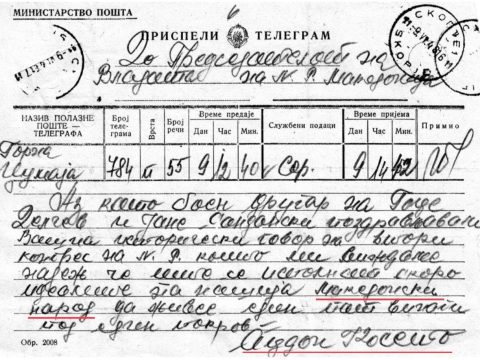 МИНИСТАРСТВО ПОШТА
ПРИСПЕЛИ ТЕЛЕГРАМ
До Председателот на
Владата на Н. Р. Македонија
НАЗИВ ПОЛАЗНЕ ПОШТЕ – ТЕЛЕГРАФА
Број телеграма
Врста
Број речи
Време предаје
Дан Час Мин.
Службени подаци
Време пријема
Дан Час Мин.
Примио
Горна
Џумаја 784 п 55 9 12 40 Сор. 9 14 42
Аз како боен другар на Гоце
Делчев и Јане Сандански поздравявам
Вашия исторически говор на втори
конгрес на Н. Ф. който ми
надеж че се скоро
идеалите на македонски
народ да живее един път
под един покров
Андон Косето
Обр. 2008